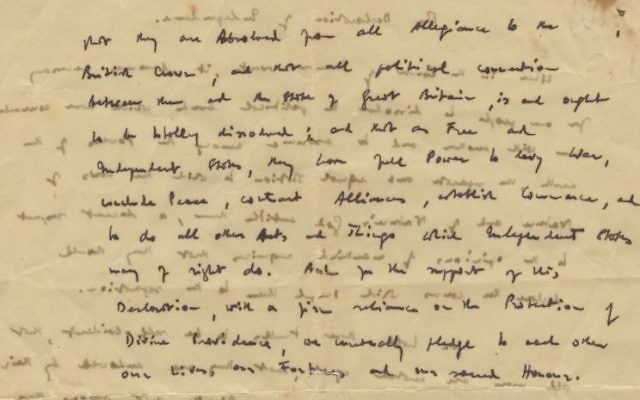 that they are Absolved from all Allegiance to the
British Crown, and that all political connection
between them and the State of Great Britain, is and ought
to be totally dissolved; and that as Free and
Independent States, they have full Power to levy War,
conclude Peace, contract Alliances, establish Commerce, and
to do all other Acts and Things which Independent States
may of right do. And for the support of this
Declaration, with a firm reliance on the Protection of
Divine Providence, we mutually pledge to each other
our Lives, our Fortunes and our sacred Honour.